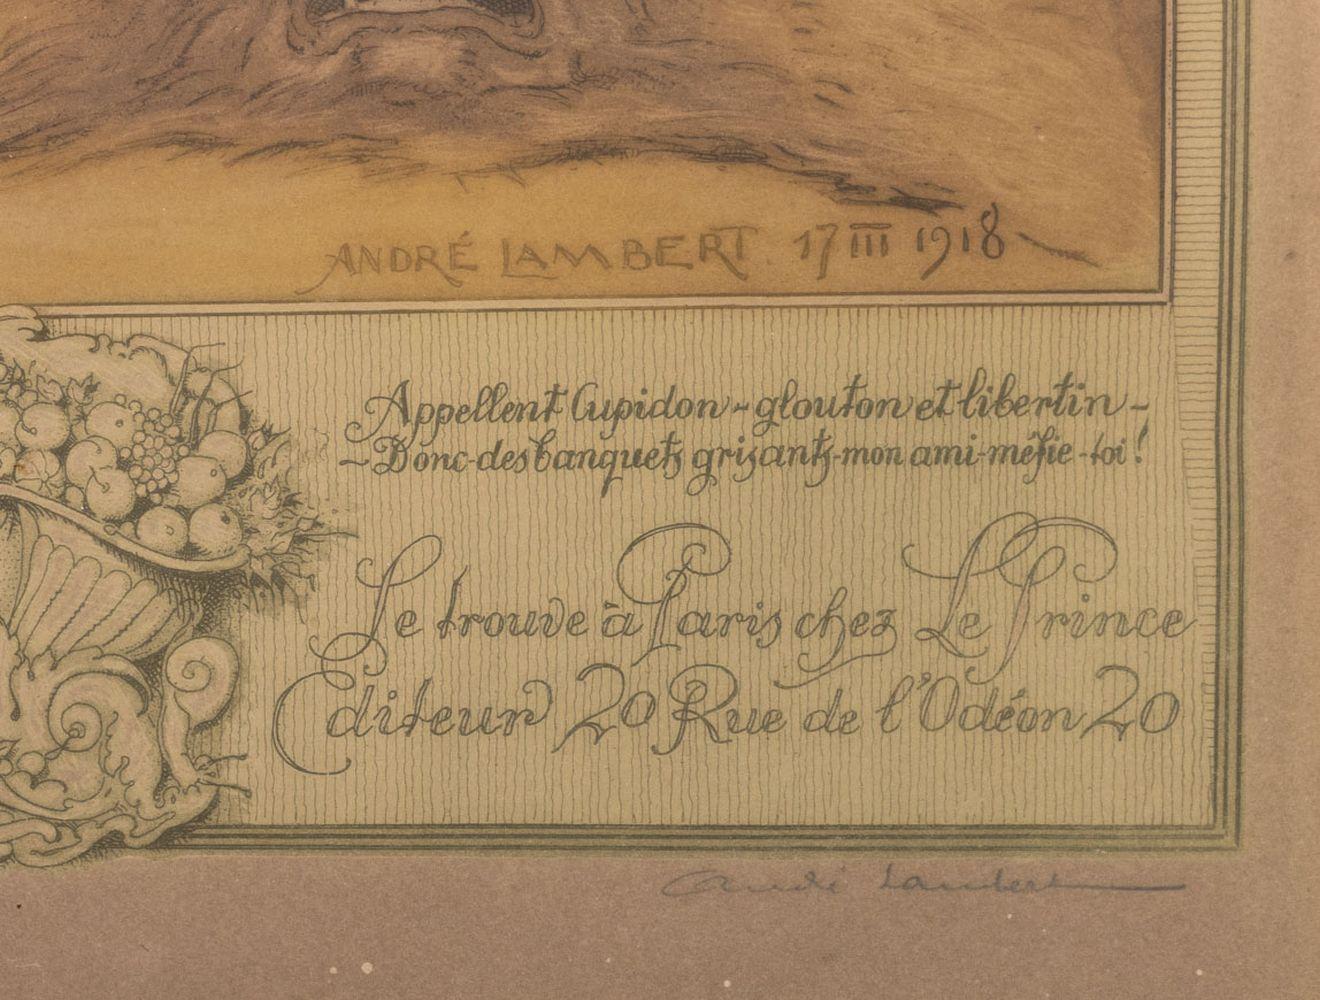 ANDRÉ LAMBERT. 17 III 1918
Appellent Cupidon - glouton et libertin -
- Donc-des banquets grisants-mon ami-méfie-toi!
Se trouve à Paris chez Le Prince
Editeur 20 Rue de l'Odéon 20
André Lambert